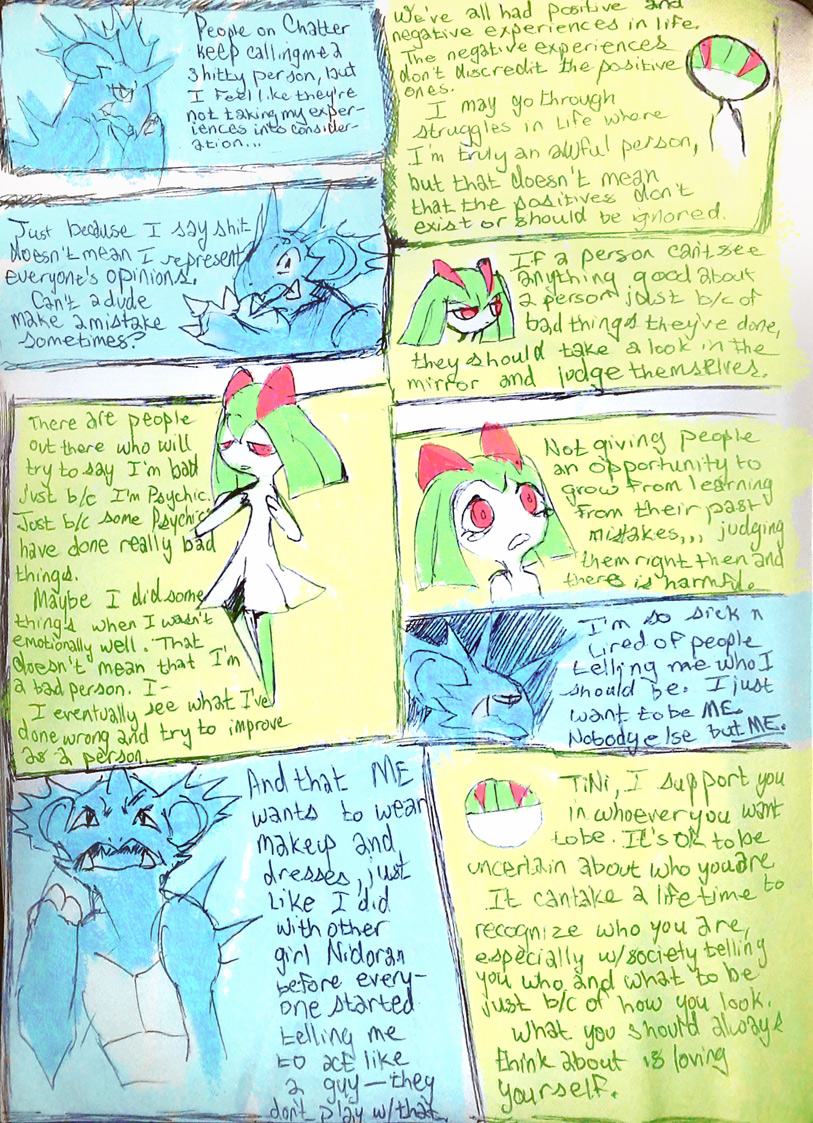 People on Chatter
keep calling me a
shitty person, but
I feel like they're
not taking my exper-
iences into consider-
ation...
We've all had positive and
negative experiences in life.
The negative experiences
don't discredit the positive
ones.
I may go through
struggles in life where
I'm truly an awful person,
but that doesn't mean
that the positives don't
exist or should be ignored.
Just because I say shit
doesn't mean I represent
everyone's opinions.
Can't a dude
make a mistake
sometimes?
If a person can't see
anything good about
a person just b/c of
bad things they've done,
they should take a look in the
mirror and judge themselves.
There are people
out there who will
try to say I'm bad
just b/c I'm Psychic.
Just b/c some Psychics
have done really bad
things.
Maybe I did some
things when I wasn't
emotionally well. That
doesn't mean that I'm
a bad person. I-
I eventually see what I've
done wrong and try to improve
as a person.
Not giving people
an opportunity to
grow from learning
from their past
mistakes,,, judging
them right then and
there is harmful.
I'm so sick n
tired of people
telling me who I
should be. I just
want to be ME.
Nobody else but ME.
And that ME
wants to wear
makeup and
dresses, just
like I did
with other
girl Nidoran
before every-
one started
telling me
to act like
a guy—they
don't play w/that.
TiNi, I support you
in whoever you want
to be. It's ok to be
uncertain about who you are
It can take a lifetime to
recognize who you are,
especially w/society telling
you who and what to be
just b/c of how you look.
What you should always
think about is loving
yourself.